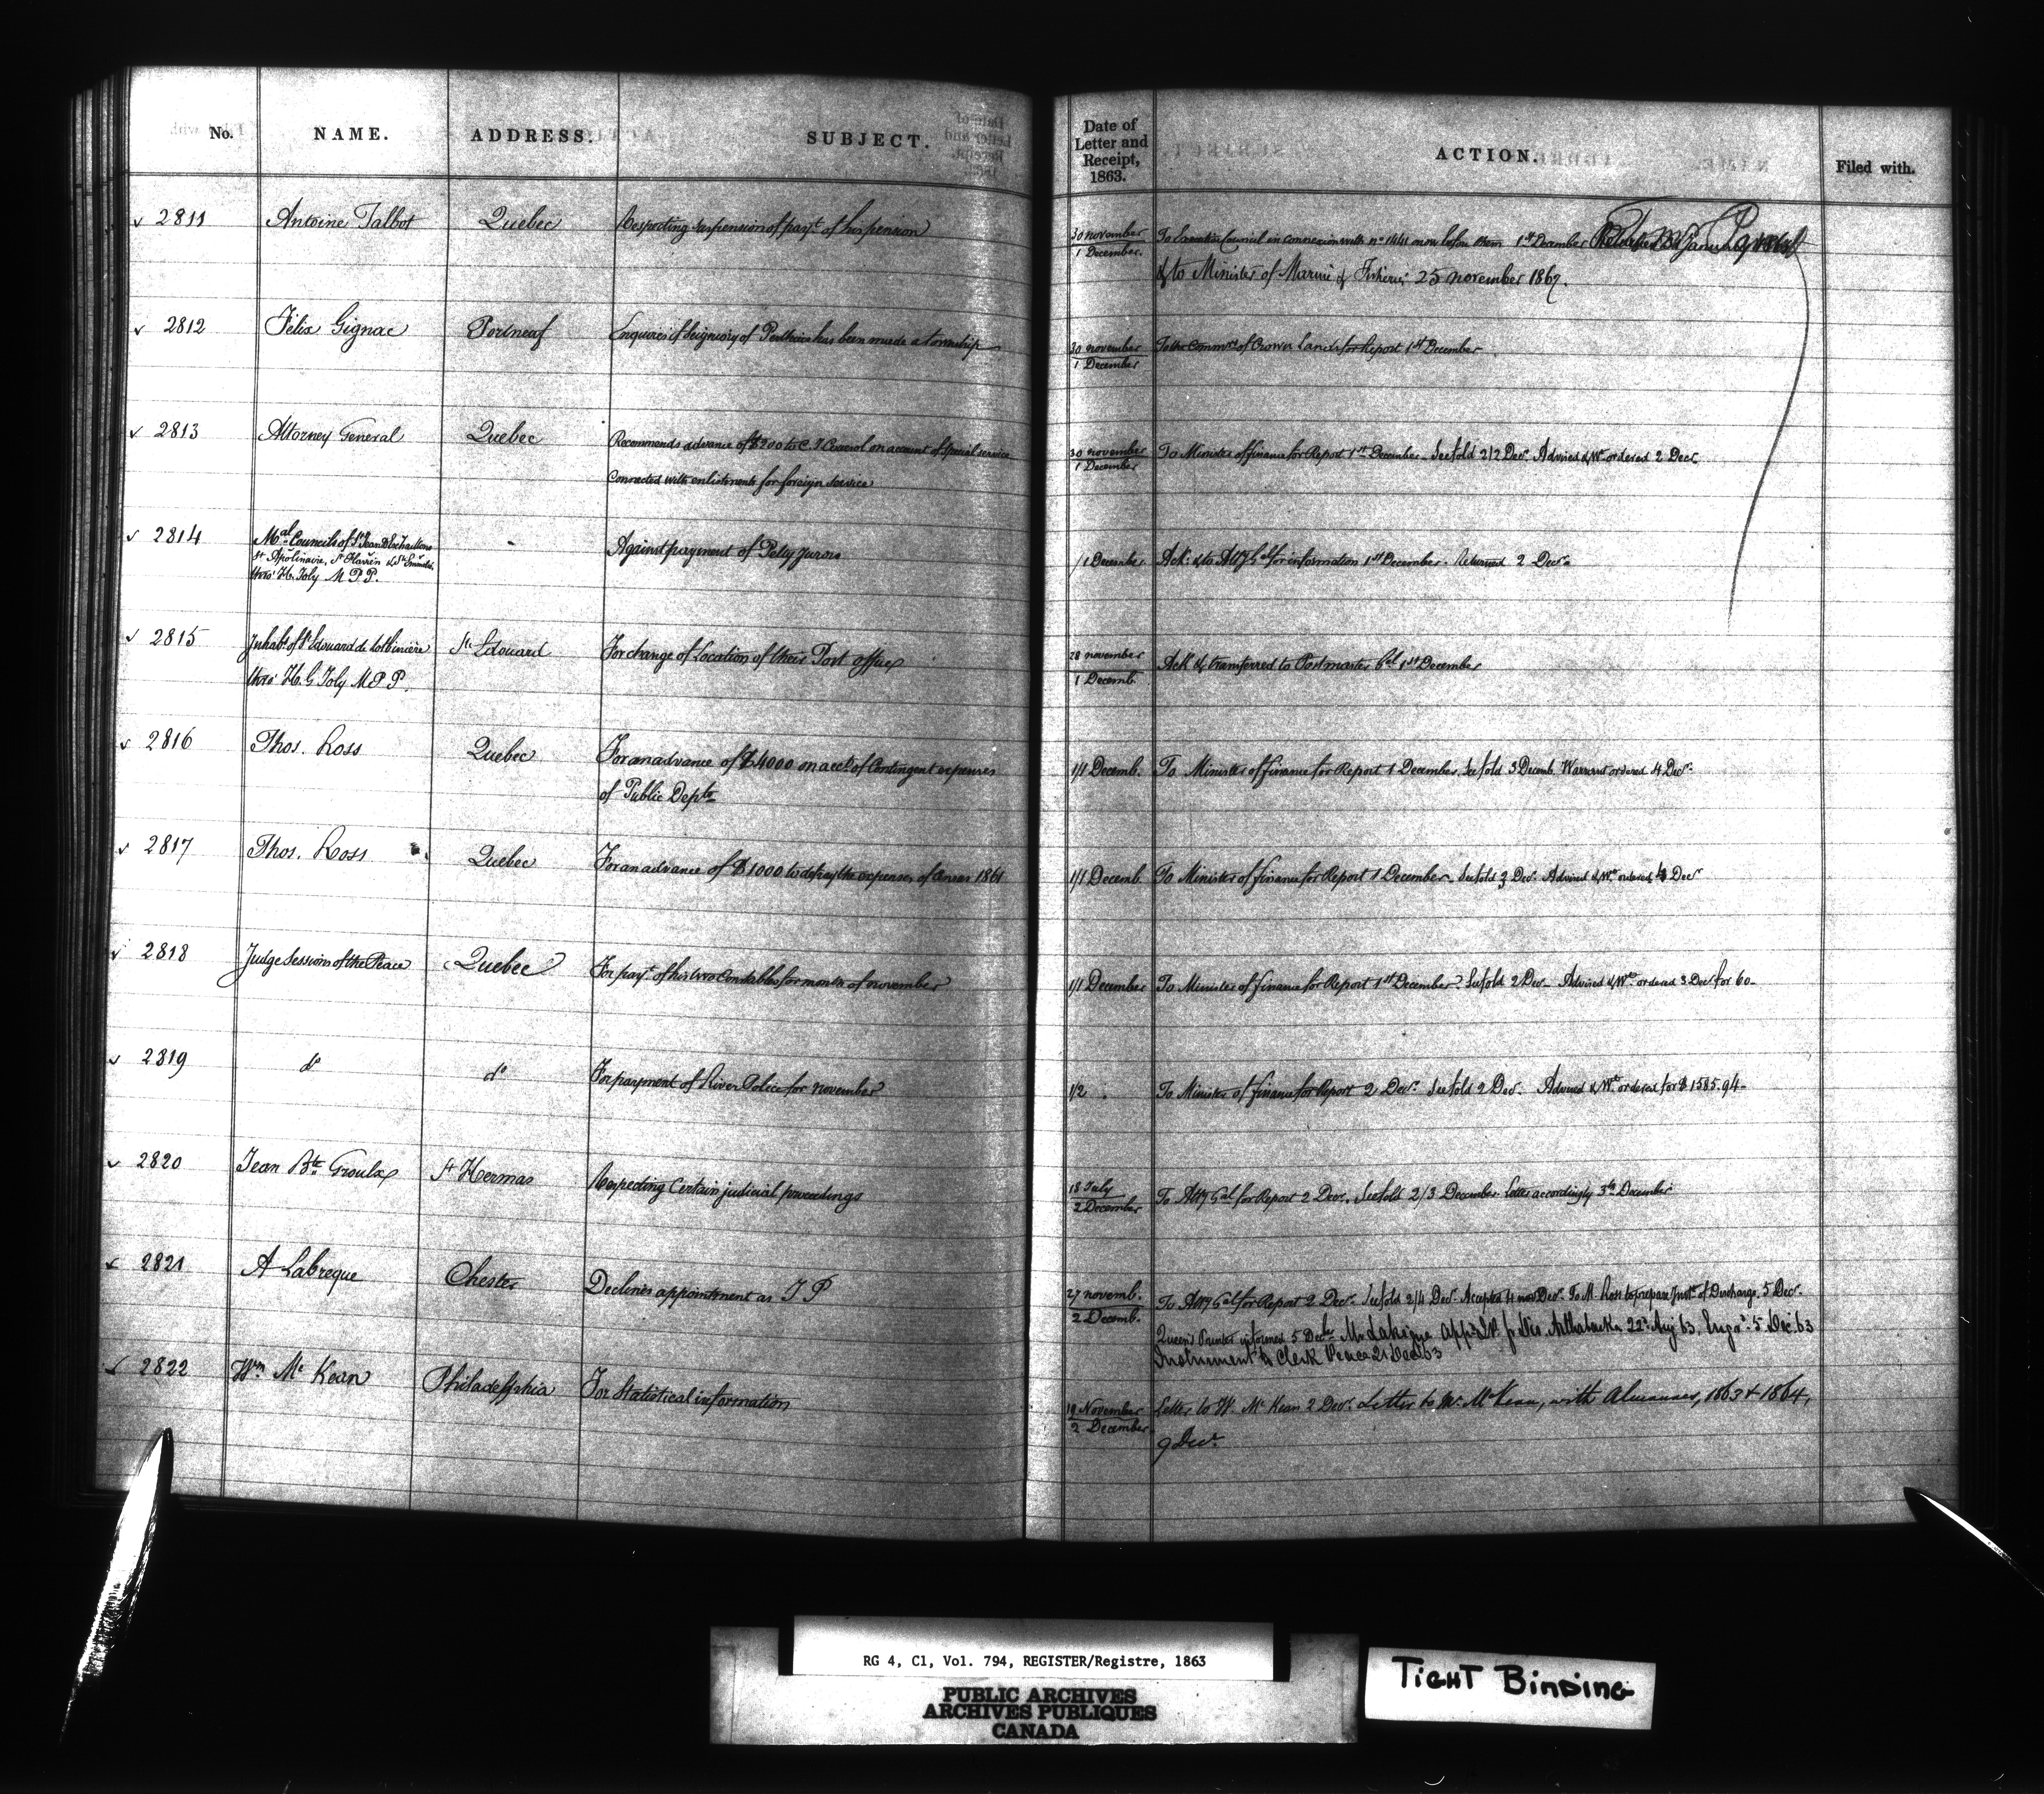 No. NAME. ADDRESS. SUBJECT. Date of Letter and Receipt, 1863. ACTION. Filed with.
2811 Antoine Talbot Quebec Respecting suspension of payt. of his pension 30 november / 1 December. To Executive Council in connexion with no 1441 now before them 1st December
& to Minister of Marine & Fisheries 25 november 1867.
2812 Felix Gignac Portneaf Enquires if Seigniory of Perthuis has been made a Township 30 november / 1 December To the Commr. of Crown Lands for Report 1st December
2813 Attorney General Quebec Recommends advance of $200 to C. J. Coursol on account of Special service 30 november / 1 December To Minister of finance for Report 1st December. See fold 2/2 Decr. Advised & Wt. ordered 2 Decr.
Connected with enlistments for foreign service
2814 Mal. Councils of St Jean Deschaillons
St Apolinaire, St Flavien & Ste Emmelie,
thro' H. Joly M.P.P. Against payment of Petty jurors /1 December Ack. & to Atty Gal for information 1st December. Returned 2 Decr.
2815 Inhabts. of St Edouard de Lotbiniere St Edouard For change of Location of their Post office 28 november / 1 Decemb. Ack & transferred to Postmaster Gal 1st December
thro' H. G Joly M.P.P.
2816 Thos. Ross Quebec For an advance of $4000 on acct. of Contingent expenses 1/1 Decemb. To Minister of finance for Report 1 December. See fold 3 Decemb. Warrant ordered 4 Decr.
of Public Depts.
2817 Thos. Ross Quebec For an advance of $1000 to defray the expenses of Census 1861 1/1 Decemb To Minister of finance for Report 1 December. See fold 3 Decr. Advised & Wt. ordered 4 Decr
2818 Judge Sessions of the Peace Quebec For payt. of his two Constables for month of november 1/1 December To Minister of finance for Report 1st December. See fold 2 Decr. Advised & Wt. ordered 3 Decr for 60-
2819 do do For payment of River Police for november 1/2 To Minister of finance for Report 2 Decr. See fold 2 Decr. Advised & Wt. ordered for $1585.94-
2820 Jean Bte. Groulx St Hermas Respecting Certain judicial proceedings 18 July / 2 December To Atty Gal for Report 2 Decr. See fold 2/3 December. Letter accordingly 3rd December
2821 A Labreque Chester Declines appointment as J P 27 novemb. / 2 Decemb. To Atty Gal for Report 2 Decr. See fold 2/4 Decr. Accepted 4 Decr. To M. Ross to prepare Inst. of Discharge. 5 Decr.
Queen's Printer informed 5 Decr. Mr Labreque appd. J.P. for Dis. Arthabaska 22d Aug 63. 5 Dec. 63
Instrument to Clerk Peace 21 Dec 63
2822 Wm. Mc Kean Philadelphia For Statistical information 19 November / 2 December Letter to W. Mc Kean 2 Decr. Letter to Mr. McKean, with Almanacs, 1863 & 1864,
9 Decr.
RG 4, C1, Vol. 794, REGISTER/Registre, 1863
PUBLIC ARCHIVES
ARCHIVES PUBLIQUES
CANADA
TIGHT BINDING